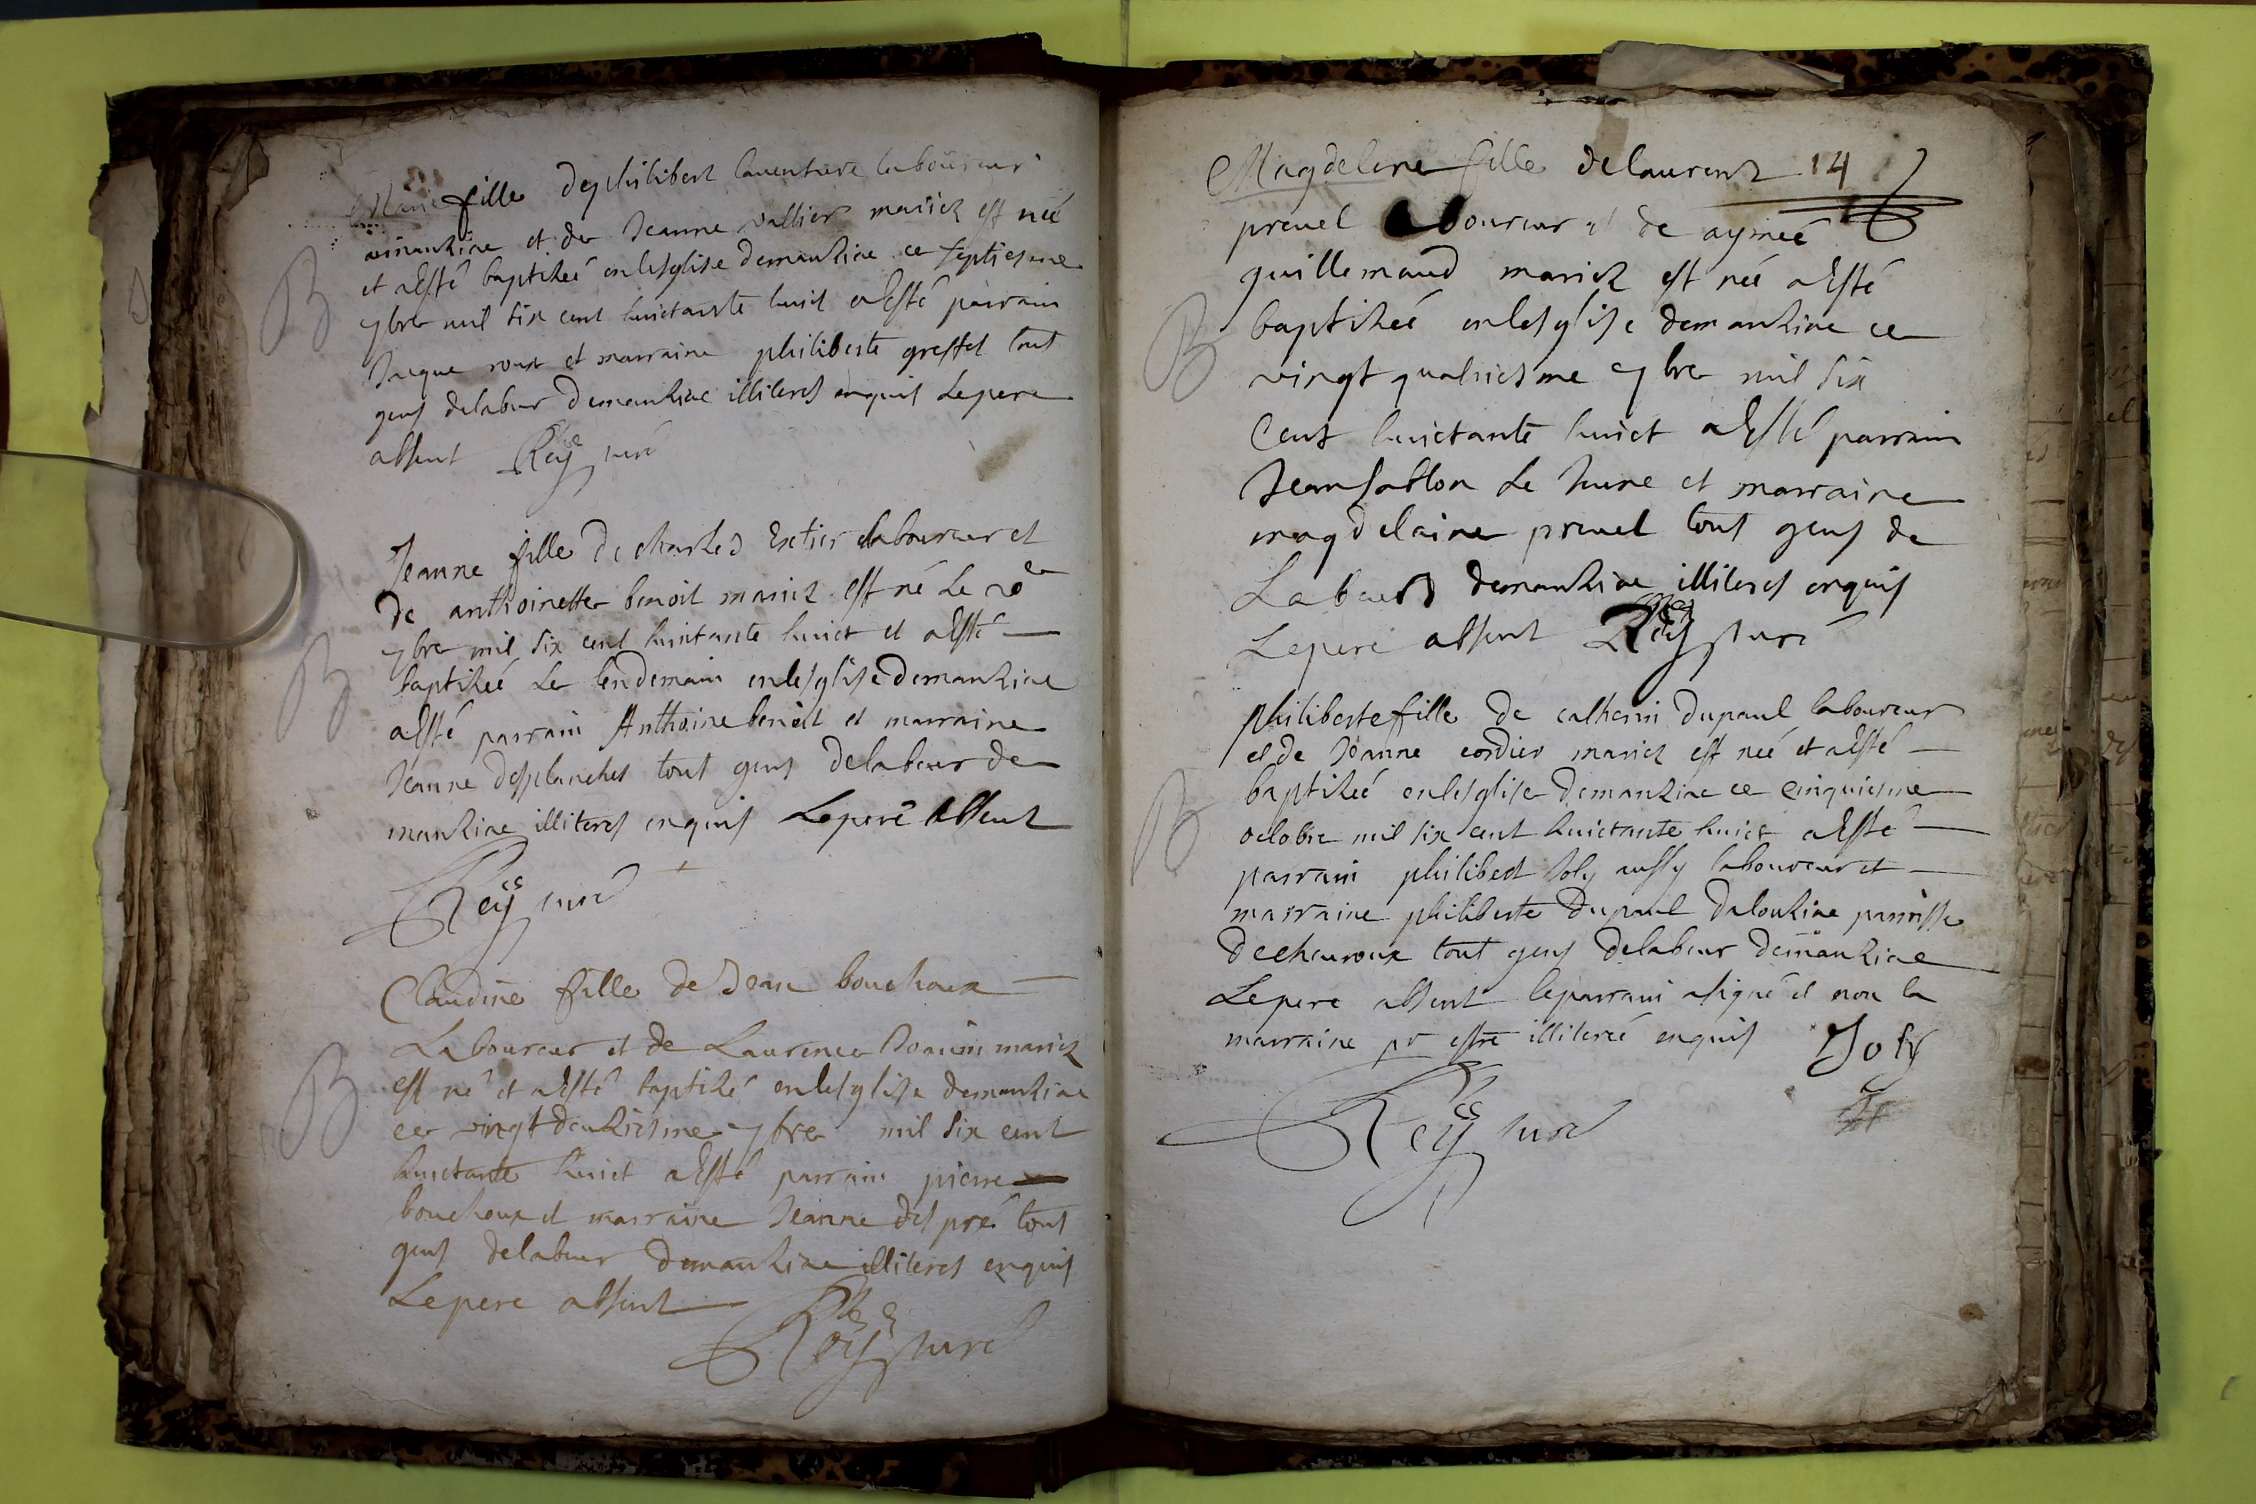 Marie fille de philibert laventure laboureur
amanziac et de Jeanne vallier mariez est neé
et a esté baptizeé en lesglise demanziac ce septiesme
7bre mil six cent huictante huict a esté parrain
Jaque roux et marraine philiberte greffet tout
gens delabeur demanziac illiteres enquis Lepere
absent Reÿ curé
B
Jeanne fille de charles Extier laboureur et
de anthoinette benoit mariez est né Le
7bre mil six cent huictante huict et a esté
baptizeé Le lendemain en lesglise demanziac
a esté parrain Anthoine benoit et marraine
Jeanne desplanches tout gens delabeur de
manziac illiteres enquis Lepere absent
Reÿ curé
B
Claudine fille de Jean bouchoux
Laboureur et de Laurence mariez
est né et a esté baptizé en lesglise demanziac
ce vingt deuxiesme 7bre mil six cent
huictante huict a esté parrain pierre
bouchoux et marraine Jeanne des pré tout
gens delabeur demanziac illiteres enquis
Lepere absent
Reÿ curé
B
Magdelene fille de laurent 14
prevel laboureur et de aymeé
guillemaud mariez est neé a esté
baptizeé en lesglise demanziac ce
vingt quatriesme 7bre mil six
Cent huictante huict a esté parrain
Jean sablon Le Jeune et marraine
magdelaine prevel tout gens de
Labeur demanziac illiteres enquis
Lepere absent Reÿ curé
B
philiberte fille de catherin dupaul laboureur
et de Jeanne cordier mariez est neé et a esté
baptizeé en lesglise demanziac ce cinquiesme
octobre mil six cent huictante huict a esté
parrain philibert Joly aussy laboureur et
marraine philiberte dupaul parroisse
de chevroux tout gens delabeur demanziac
Lepere absent leparrain a signé et non la
marraine pr estre illitereé enquis Joly
Reÿ curé
B